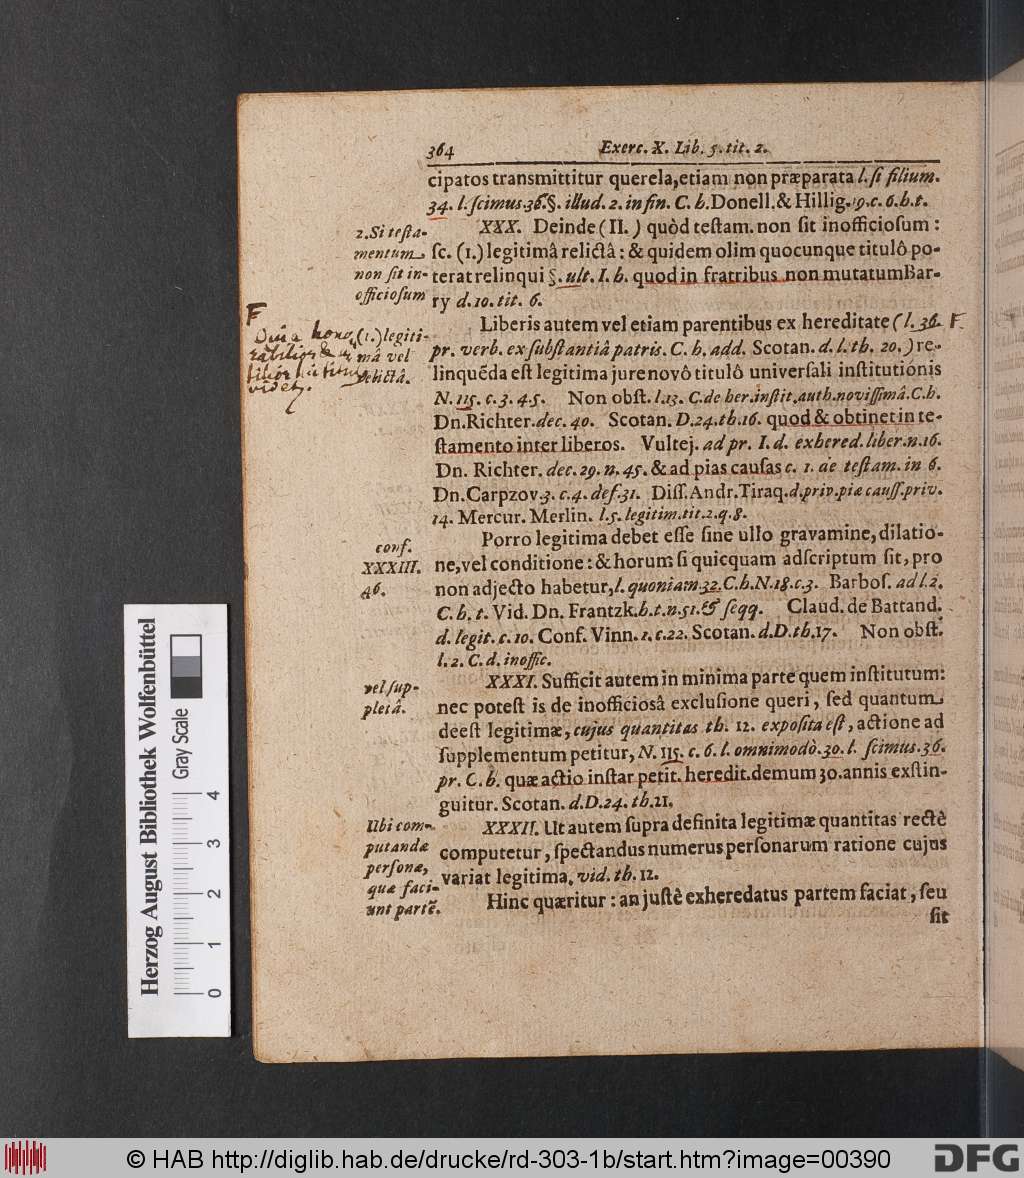 364 Exerc. X. Lib. 5. tit. 2.
cipatos transmittitur querela, etiam non præparata l. ſi filium.
34. l. ſcimus 36. §. illud. 2. in fin. C. h. Donell. & Hillig. 19. c. 6. h. t.
2. Si teſta-
mentum
non ſit in-
officioſum
XXX. Deinde (II.) quòd teſtam. non ſit inofficioſum:
ſc. (1.) legitimâ relictâ: & quidem olim quocunque titulô po-
terat relinqui §. ult. I. h. quod in fratribus non mutatum Bar-
ry d. 10. tit. 6.
F
(1.) legiti-
mâ vel
relictâ.
Liberis autem vel etiam parentibus ex hereditate (l. 36. F
pr. verb. ex ſubſtantiâ patris. C. h. add. Scotan. d. l. th. 20.) re-
linquēda eſt legitima jure novô titulô univerſali inſtitutionis
N. 115. c. 3. 4. 5. Non obſt. l. 13. C. de her. inſtit. auth. noviſſimâ. C. h.
Dn. Richter. dec. 40. Scotan. D. 24. th. 16. quod & obtinet in te-
ſtamento inter liberos. Vultej. ad pr. I. d. exhered. liber. n. 16.
Dn. Richter. dec. 29. n. 45. & ad pias cauſas c. 1. de teſtam. in 6.
Dn. Carpzov. 3. c. 4. def. 31. Diſſ. Andr. Tiraq. d. priv. piæ cauſſ. priv.
14. Mercur. Merlin. l. 5. legitim. tit. 2. q. 8.
conf.
XXXIII.
46.
Porro legitima debet eſſe ſine ullo gravamine, dilatio-
ne, vel conditione: & horum ſi quicquam adſcriptum ſit, pro
non adjecto habetur, l. quoniam 32. C. h. N. 18. c. 3. Barboſ. ad l. 2.
C. h. t. Vid. Dn. Frantzk. h. t. n. 51. & ſeqq. Claud. de Battand.
d. legit. c. 10. Conf. Vinn. 1. c. 22. Scotan. d. D. th. 17. Non obſt.
l. 2. C. d. inoffic.
vel ſup-
pletâ.
XXXI. Sufficit autem in minima parte quem inſtitutum:
nec poteſt is de inofficioſâ excluſione queri, ſed quantum
deeſt legitimæ, cujus quantitas th. 12. expoſita eſt, actione ad
ſupplementum petitur, N. 115. c. 6. l. omnimodò. 30. l. ſcimus. 36.
pr. C. h. quæ actio inſtar petit. heredit. demum 30. annis exſtin-
guitur. Scotan. d. D. 24. th. 21.
Ubi com-
putandæ
perſonæ,
quæ faci-
unt partē.
XXXII. Ut autem ſupra definita legitimæ quantitas rectè
computetur, ſpectandus numerus perſonarum ratione cujus
variat legitima. vid. th. 12.
Hinc quæritur: an juſtè exheredatus partem faciat, ſeu
ſit
Herzog August Bibliothek Wolfenbüttel
Gray Scale
0 1 2 3 4
© HAB http://diglib.hab.de/drucke/rd-303-1b/start.htm?image=00390
DFG